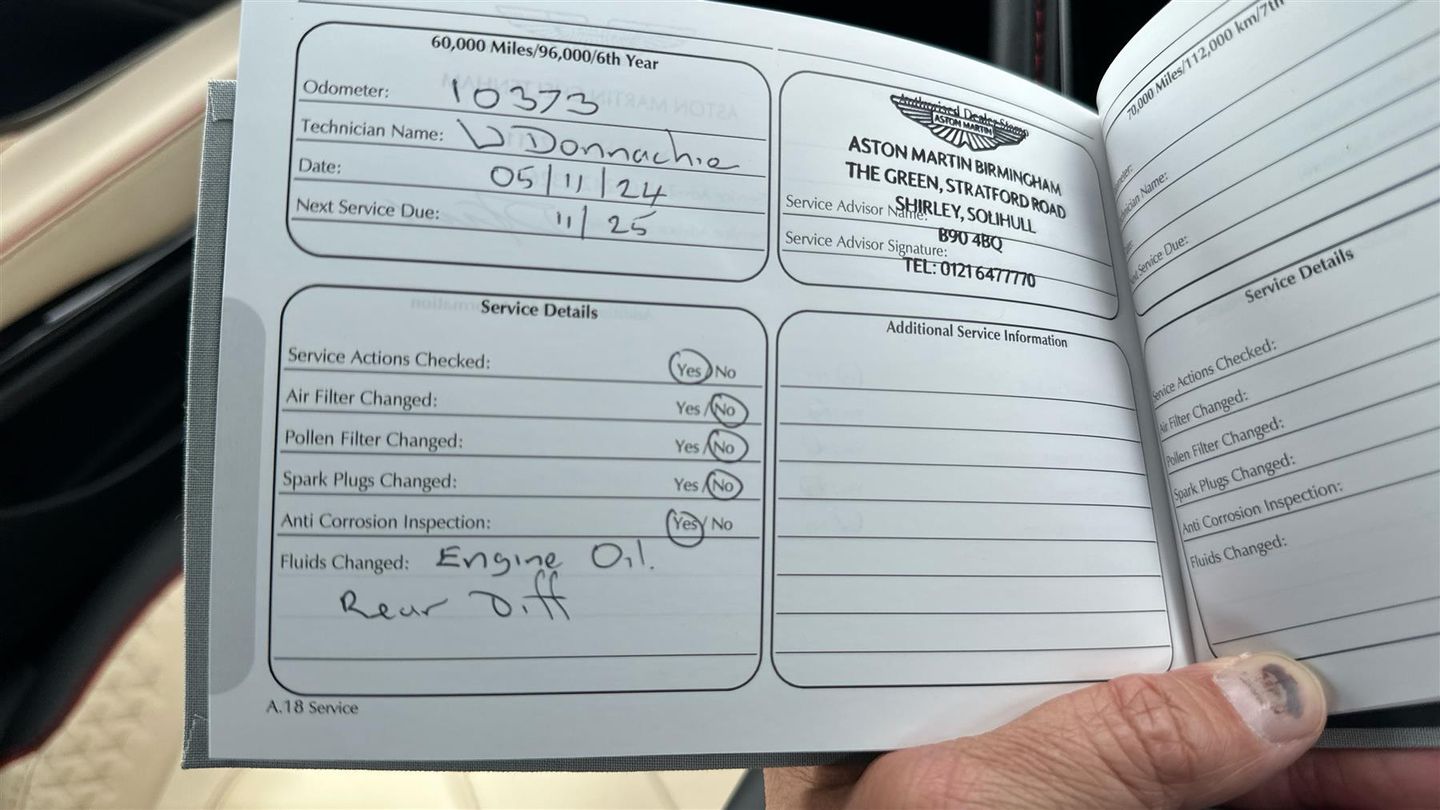 60,000 Miles/96,000/6th Year
Odometer: 10373
Technician Name: D Donnachie
Date: 05/11/24
Next Service Due: 11/25
Authorised Dealer Stamp
ASTON MARTIN
ASTON MARTIN BIRMINGHAM
THE GREEN, STRATFORD ROAD
SHIRLEY, SOLIHULL
Service Advisor Name:
B90 4BQ
Service Advisor Signature:
TEL: 0121 6477770
Service Details
Service Actions Checked: Yes/No
Air Filter Changed: Yes/No
Pollen Filter Changed: Yes/No
Spark Plugs Changed: Yes/No
Anti Corrosion Inspection: Yes/No
Fluids Changed: Engine Oil.
Rear Diff
Additional Service Information
A.18 Service
70,000 Miles/112,000 km/7th
Service Due:
Service Details
Service Actions Checked:
Air Filter Changed:
Pollen Filter Changed:
Spark Plugs Changed:
Anti Corrosion Inspection:
Fluids Changed: